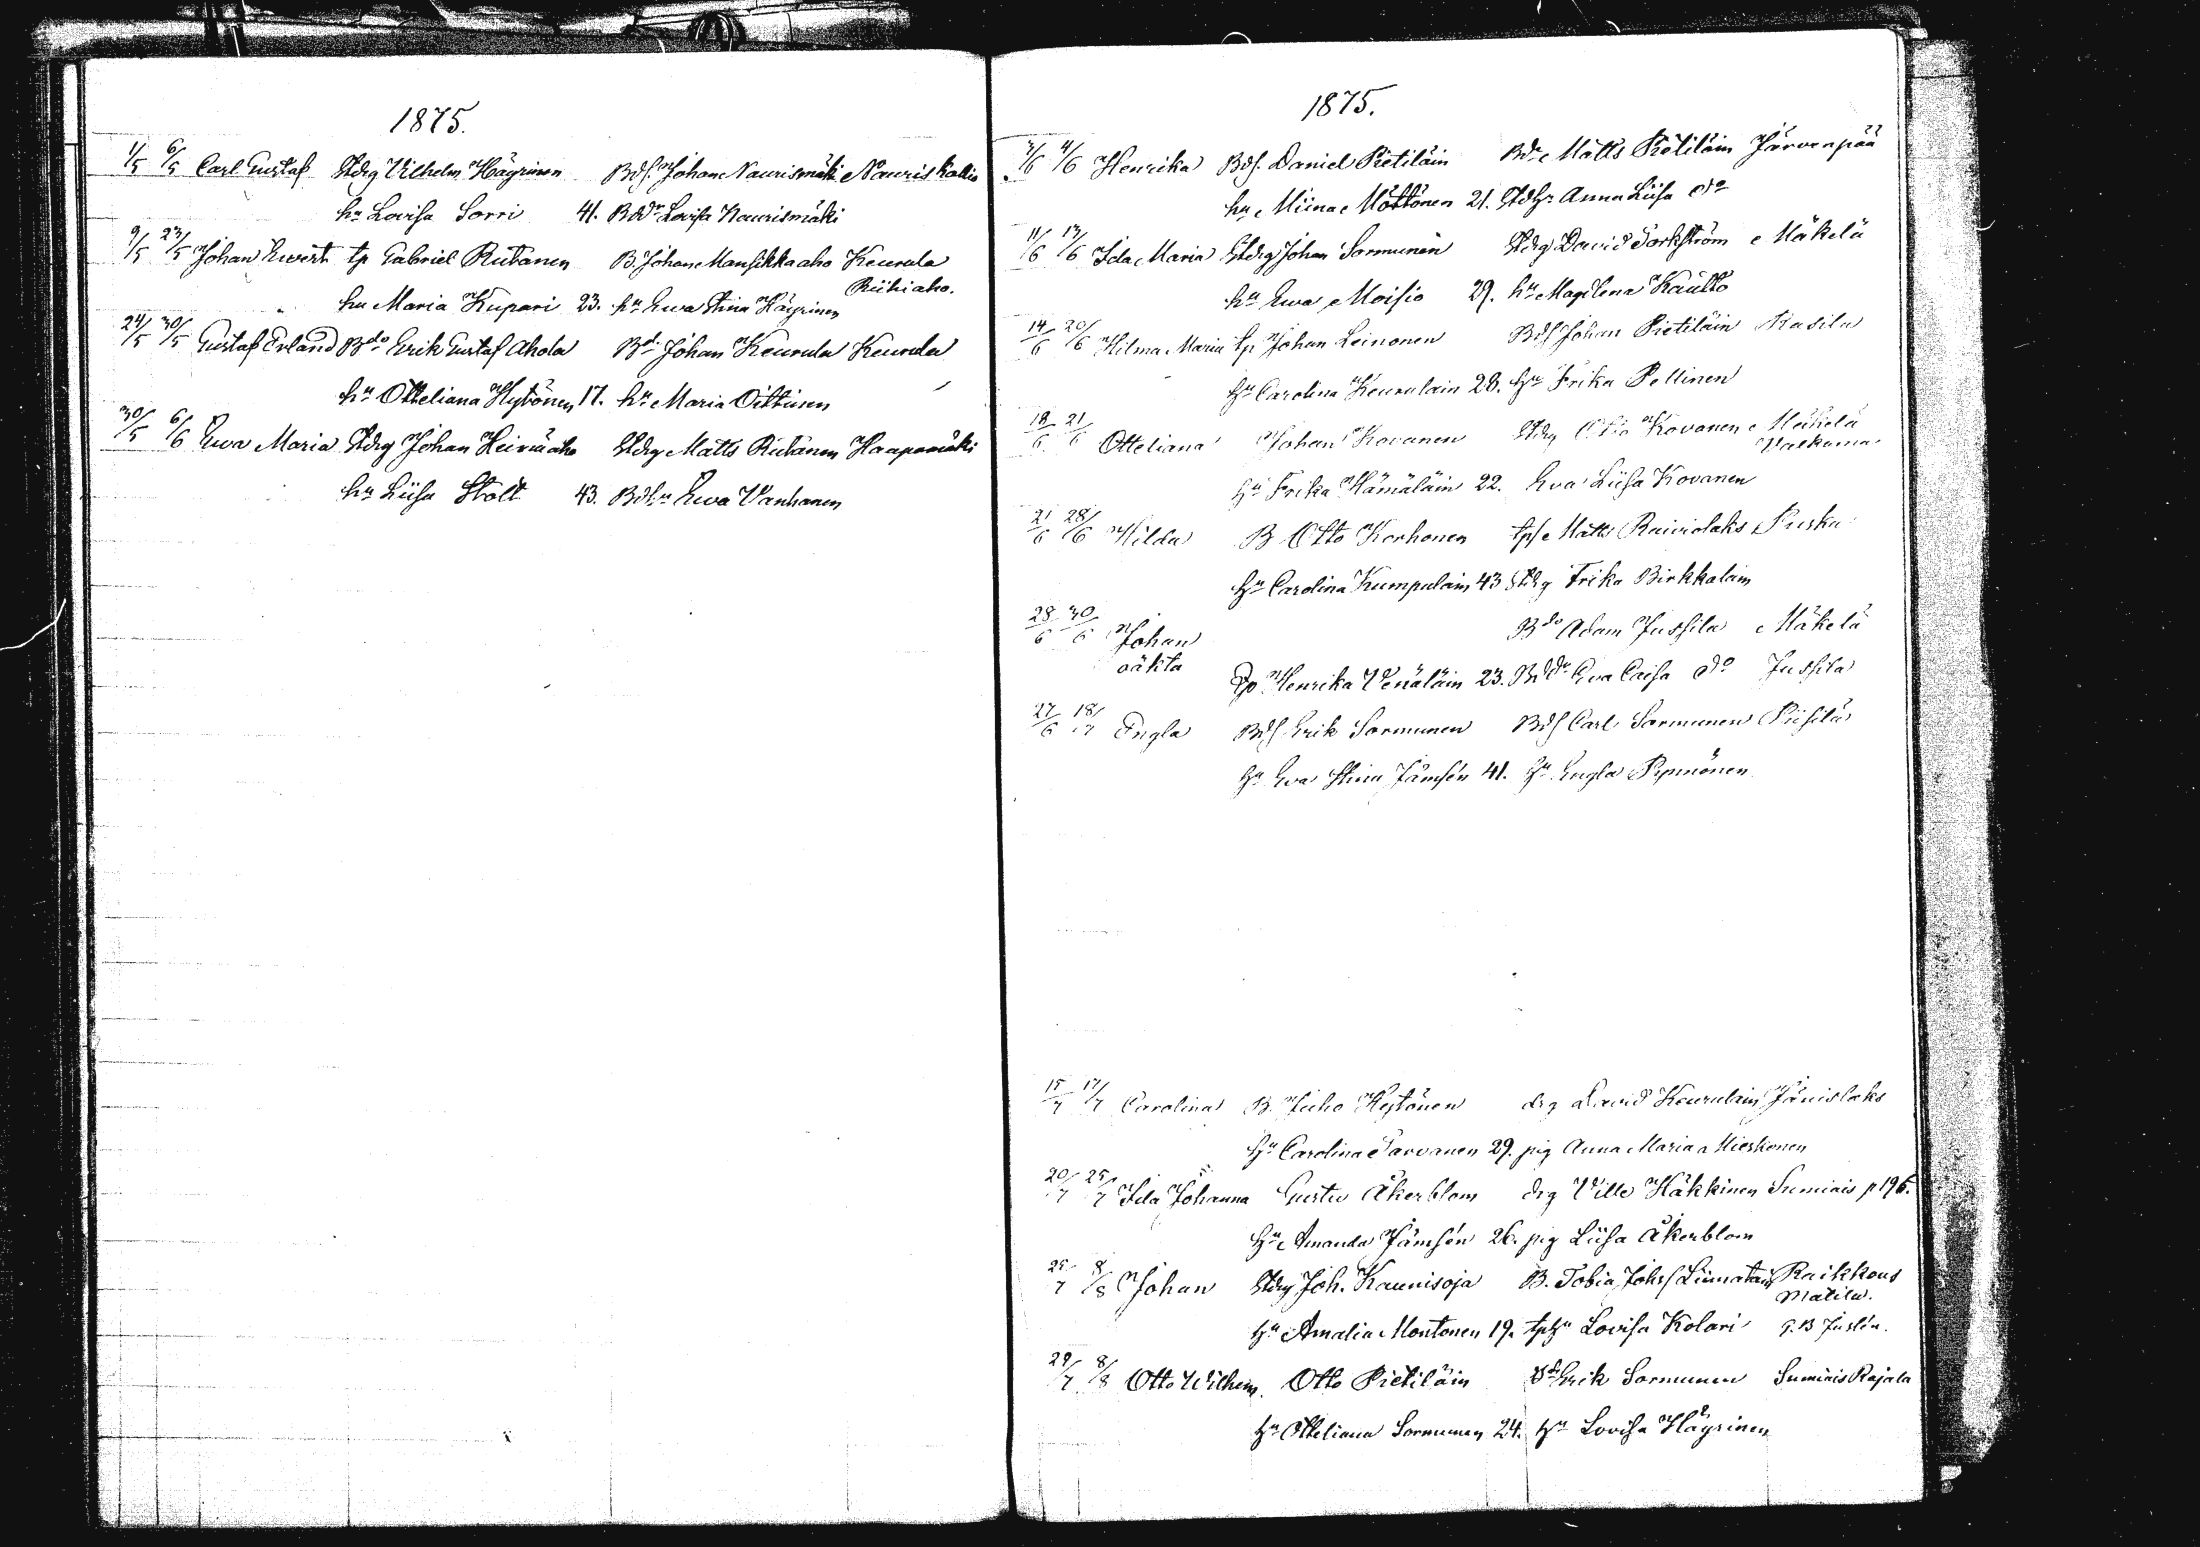 1875.
1/5 6/5 Carl Gustaf Stdrg Vilhelm Häyrinen Bdf. Johan Naurismäki Nauriskallio
hu Lovisa Sorri 41. Bddr Lovisa Naurismäki
9/5 23/5 Johan Ewert tp Gabriel Rutanen B. Johan Mansikkaaho Keurula
Riihiaho.
hu Maria Kupari 23. hu Ewa Stina Häyrinen
24/5 30/5 Gustaf Erland Bdo Erik Gustaf Ahola Bd. Johan Keurula Keurula
hu Otteliana Hytönen 17. hu Maria Oittinen
30/5 6/6 Ewa Maria Stdrg Johan Heinäaho Stdrg Matts Rutanen Haapamäki
hu Liisa Stolt 43. Bdhu Ewa Vanhanen
1875.
3/6 4/6 Henrika Bdf. Daniel Pietiläin Bde Matts Pietiläin Järvenpää
hu Miina Möttönen 21. Stdhr Anna Liisa do
11/6 13/6 Ida Maria Stdrg Johan Sormunen Stdrg David Torkström Mäkelä
hu Ewa Moisio 29. hu Magdlena Kautto
14/6 20/6 Hilma Maria tp Johan Leinonen Bdf Johan Pietiläin Rasila
hu Carolina Keurulain 28. hu Frika Pellinen
18/6 21/6 Otteliana Johan Kovanen Stdrg Otto Kovanen Mäkelä
Valkama
hu Frika Hämäläin 22. Eva Liisa Kovanen
21/6 28/6 Hilda B Otto Korhonen tpf Matts Raiviolaks Puska
hu Carolina Kumpulain 43 Stdrg Frika Birkkalain
28/6 30/6 Johan Bdo Adam Jussila Mäkelä
oäkta
Pp Henrika Venäläin 23. Bddr Eva Caisa do Jussila
27/6 18/7 Engla Bdf Erik Sormunen Bdf Carl Sormunen Piisilä
hu Eva Stina Jämsén 41. hu Engla Pynnönen
15/7 17/7 Carolina B. Juho Hytönen drg David Keurulain Jänislaks
hu Carolina Tarvanen 29. pig Anna Maria Mieskonen
20/7 25/7 Ida Johanna Gustu Åkerblom drg Ville Häkkinen Sumiais p 196.
hu Amanda Jämsén 26. pig Liisa Åkerblom
25/7 8/8 Johan Stdrg Joh. Kaunisoja B. Tobia Johsf Liimatain Raikkous
Matila.
hu Amalia Montonen 19. tphu Lovisa Kolari
29/7 8/8 Otto Wilhem. Otto Pietiläin Erik Sormunen Sumiais Rajala
hu Otteliana Sormunen 24. hu Lovisa Häyrinen